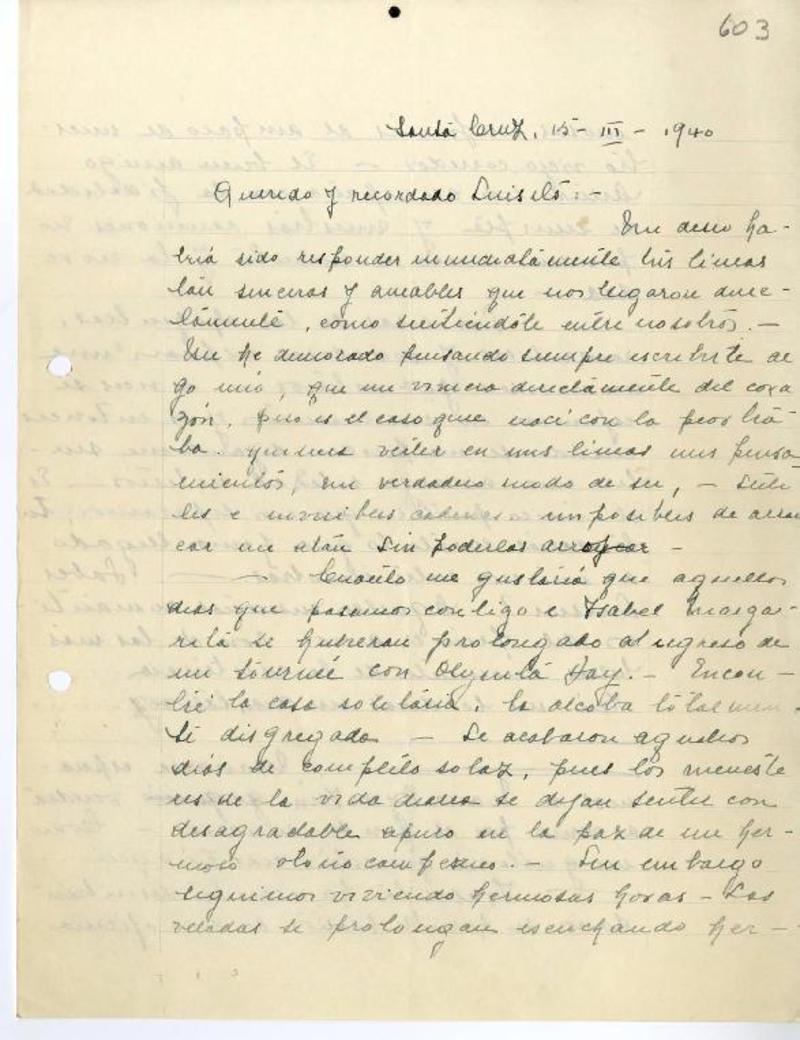 603
Santa Cruz, 15 - III - 1940
Querido y recordado Luis
Mi deseo ha-
bría sido responder inmediatamente tus líneas
tan sinceras y amables que nos llegaron direc-
tamente, como sintiéndote entre nosotros. -
Me he demorado pensando siempre escribirte al
go mío, que me viniera directamente del cora
zón. Pero es el caso que nací con la peor tra
ba. quisiera verter en mis líneas mis pensa-
mientos, mi verdadero modo de ser, - Suti
les e invisibles cadenas imposibles de arran
car me atan sin poderlas arrojar -
- Cuánto me gustaría que aquellos
días que pasamos contigo e Ysabel Marga-
rita se hubieran prolongado al regreso de
mi tourneé con -
tré la casa solitaria, la alcoba totalmen-
te disgregada - Se acabaron aquellos
días de completo solaz, pues los meneste
res de la vida diaria se dejan sentir con
desagradable apuro en la paz de un her-
moso otoño campesino. - Sin embargo
seguimos viviendo hermosas horas - Las
veladas se prolongan escuchando her-